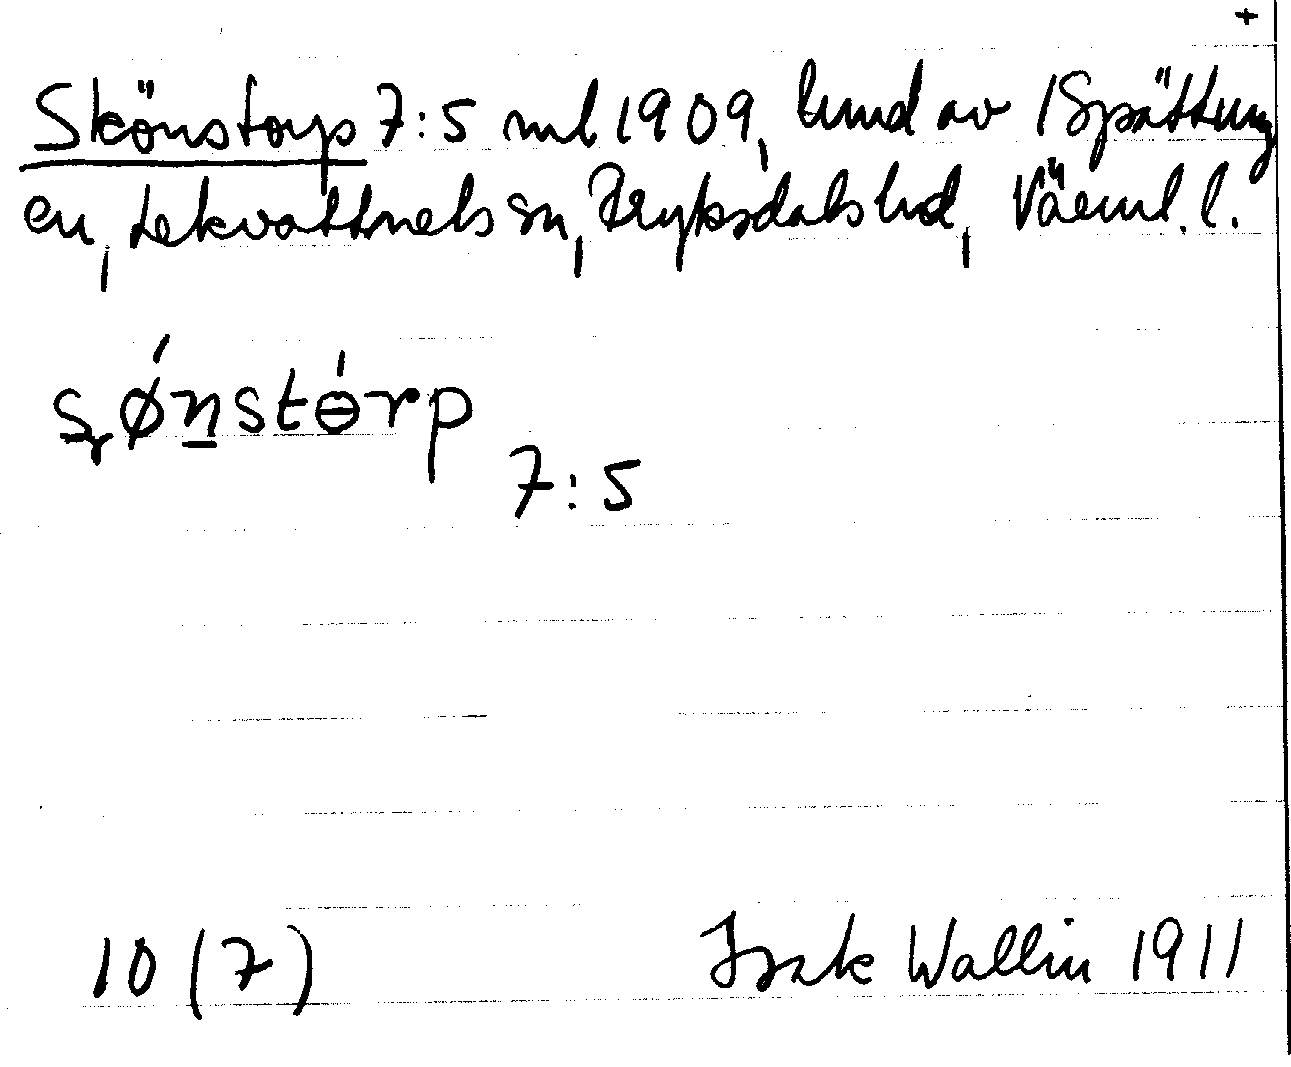 +
Skönstorp 7:5 ml 1909, lund av 1 Spättung
en, Lekvattnets sn, Fryksdals hd, Värml. l.
ʂǿn̲stɵ́rp
7:5
10 (7) Isak Wallin 1911